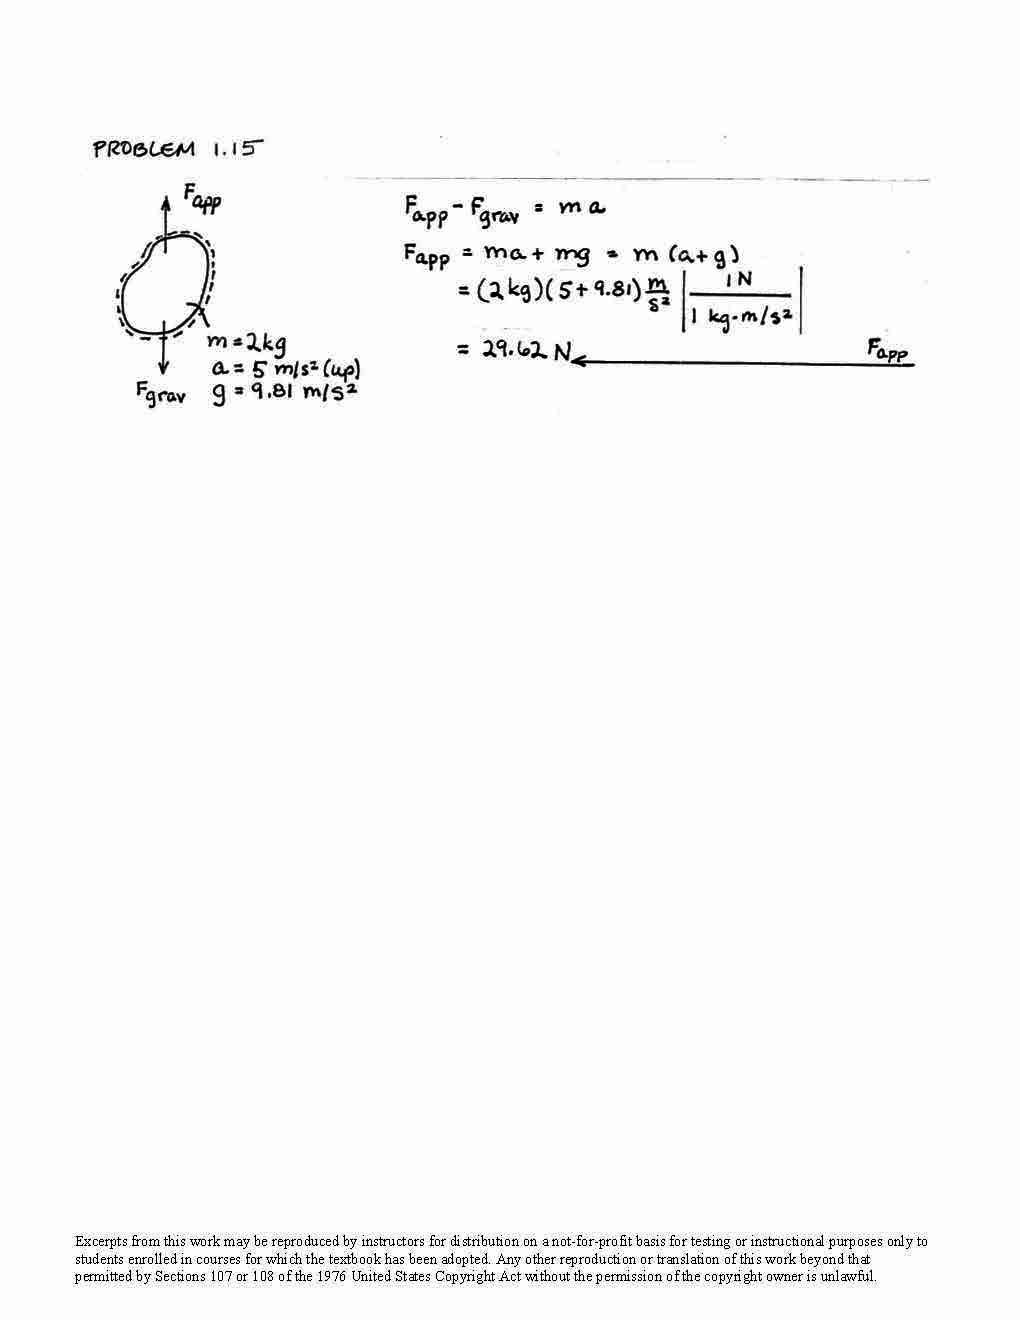 PROBLEM 1.15
Fapp
Fgrav
m = 2kg
a = 5 m/s² (up)
g = 9.81 m/s²
Fapp - Fgrav = ma
Fapp = ma + mg = m (a+g)
= (2kg)(5+9.81) m/s² | 1N / 1 kg·m/s² |
= 29.62 N
Fapp
Excerpts from this work may be reproduced by instructors for distribution on a not-for-profit basis for testing or instructional purposes only to
students enrolled in courses for which the textbook has been adopted. Any other reproduction or translation of this work beyond that
permitted by Sections 107 or 108 of the 1976 United States Copyright Act without the permission of the copyright owner is unlawful.